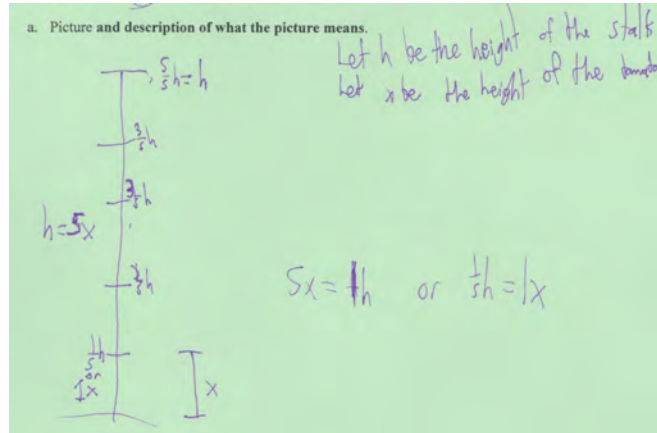 a. Picture and description of what the picture means.
Let h be the height of the stalk
Let x be the height of the
5/5h=h
3/5h
h=5x
5x=1h or 1/5h=1x
1/5h
or
1x
x